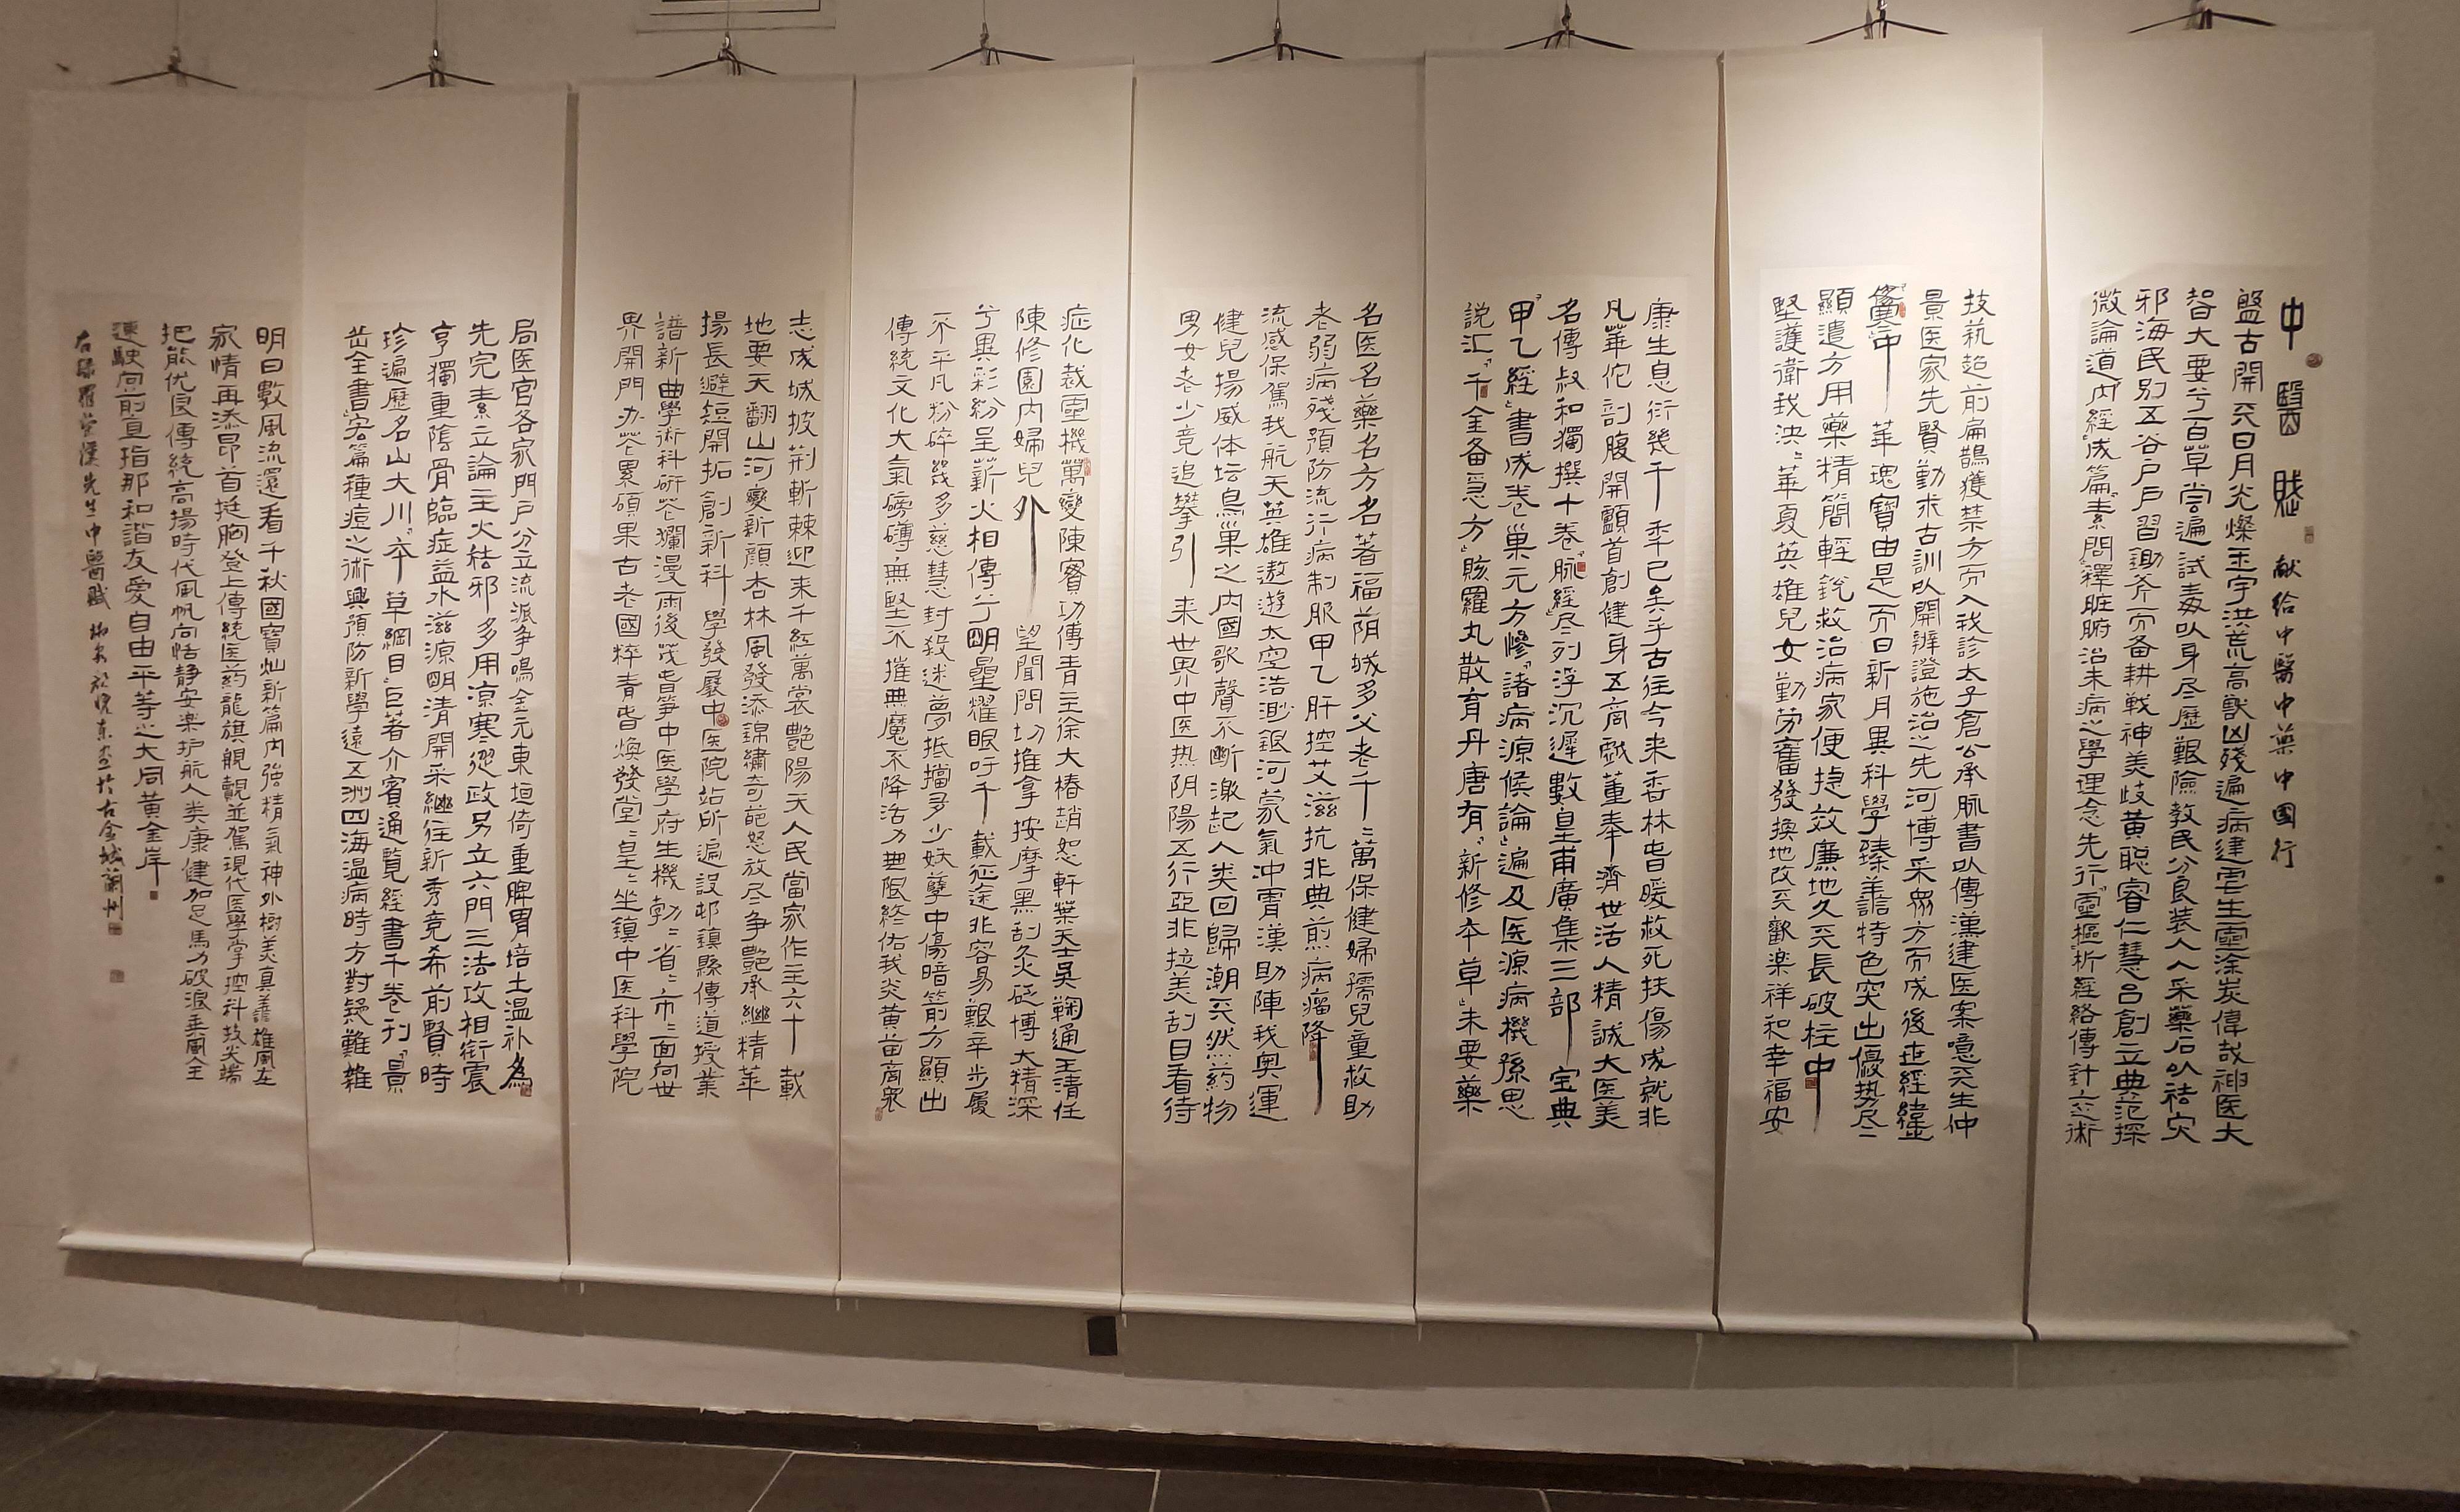 中醫賦 献给中醫中藥中國行
盤古開天日月光燦玉宇洪荒高獸凶殘遍病建雪生靈涂炭偉哉神医大
智大要兮百草尝遍试毒以身尽歷艱險教民分良装人人采藥石以祛灾
邪海民别五谷戸戸習鋤斧而备耕戦神美歧黄聪睿仁慧吕創立典范探
微論道内經成篇素問釋脏腑治未病之學理念先行靈樞析經絡傳針灸術
技藝超前扁鵲獲禁方而入我診太子倉公承脉書以傳漢建医案噫天生仲
景医家先賢勤求古訓以開辨證施治之先河博采衆方而成後世經緯
中華瑰寶由是而日新月異科學臻善諸特色突出優势尽
顯遣方用藥精簡輕锐救治病家便捷效廉地久天長破柱中
堅護衛我泱泱華夏英雄兒女勤劳奮發換地改天歡樂祥和幸福安
康生息衍幾千年已矣乎古往今来杏林杳暖救死扶傷成就非
凡華佗剖腹開顱首創健身五禽戯董奉濟世活人精誠大医美
名傳叔和獨撰十卷脉經尽列浮沉遲數皇甫廣集三部宝典
甲乙經書成卷巢元方慘諸病源候論遍及医源病機孫思
説汇千金备急方賅羅丸散育丹唐有新修本草朱要藥
名医名藥名方名著福荫城多父老千千萬保健婦孺兒童救助
老弱病殘預防流行病制服甲乙肝控艾滋抗非典煎病瘤降
流感保駕我航天英雄遨遊太空浩渺銀河蒙氣冲霄漢助陣我奥運
健兒揚威体坛鳥巢之内國歌聲不断激起人类回歸潮天然药物
男女老少竞追攀引来世界中医热阴陽五行亞非拉美刮目看待
症化裁靈機萬變陳實功傳青主徐大椿趙恕軒葉天士吳鞠通王清任
陳修園内婦兒外望聞問切推拿按摩黑刮灸砭博大精深
兮異彩紛呈薪火相傳兮明星耀眼吁千載征途非容易艱辛步履
不平凡粉碎幾多慈慧封殺迷夢抵擋多少妖孽中傷暗箭方顯出
傳統文化大氣磅礴無堅不摧典魔不降活力無限终佑我炎黄苗裔衆
志成城披荆斬棘迎来千紅萬裳艷陽天人民當家作主六十載
地要天翻山河變新顔杏林風發添錦繡奇葩怒放尽争艷承繼精華
揚長避短開拓創新科學發展中医院站所遍設邨鎮縣傳道授業
譜新曲學術科研花爛漫雨後筅旹筝中医学府生機勃勃省省市市面向世
界開門办花累碩果古老國粹青旹焕發堂堂皇皇坐鎮中医科學院
局医官各家門戸分立流派争鳴金元東垣倚重脾胃培土温补為
先完素立論主火祛邪多用凉寒從政另立六門三法攻相銜震
亨獨重陰骨臨症益水滋源明清開采繼往新秀竞希前賢時
珍遍歷名山大川本草綱目巨著介賓通覧經書千卷刊景
岳全書宏篇種痘之術興預防新學遠五洲四海温病時方對疑難雜
明日數風流還看千秋國寶灿新篇内強精氣神外樹美真善雄風在
家情再添昂首挺胸登上傳統医药龍旗舰艱並駕現代医學掌控科技尖端
把能优良傳統高揚時代風帆向恬静安楽护航人类康健加足馬力破浪乗風全
速駛向前直指那和諧友愛自由平等之大同黄金岸
右録羅堂漢先生中醫賦 於古金城蘭州